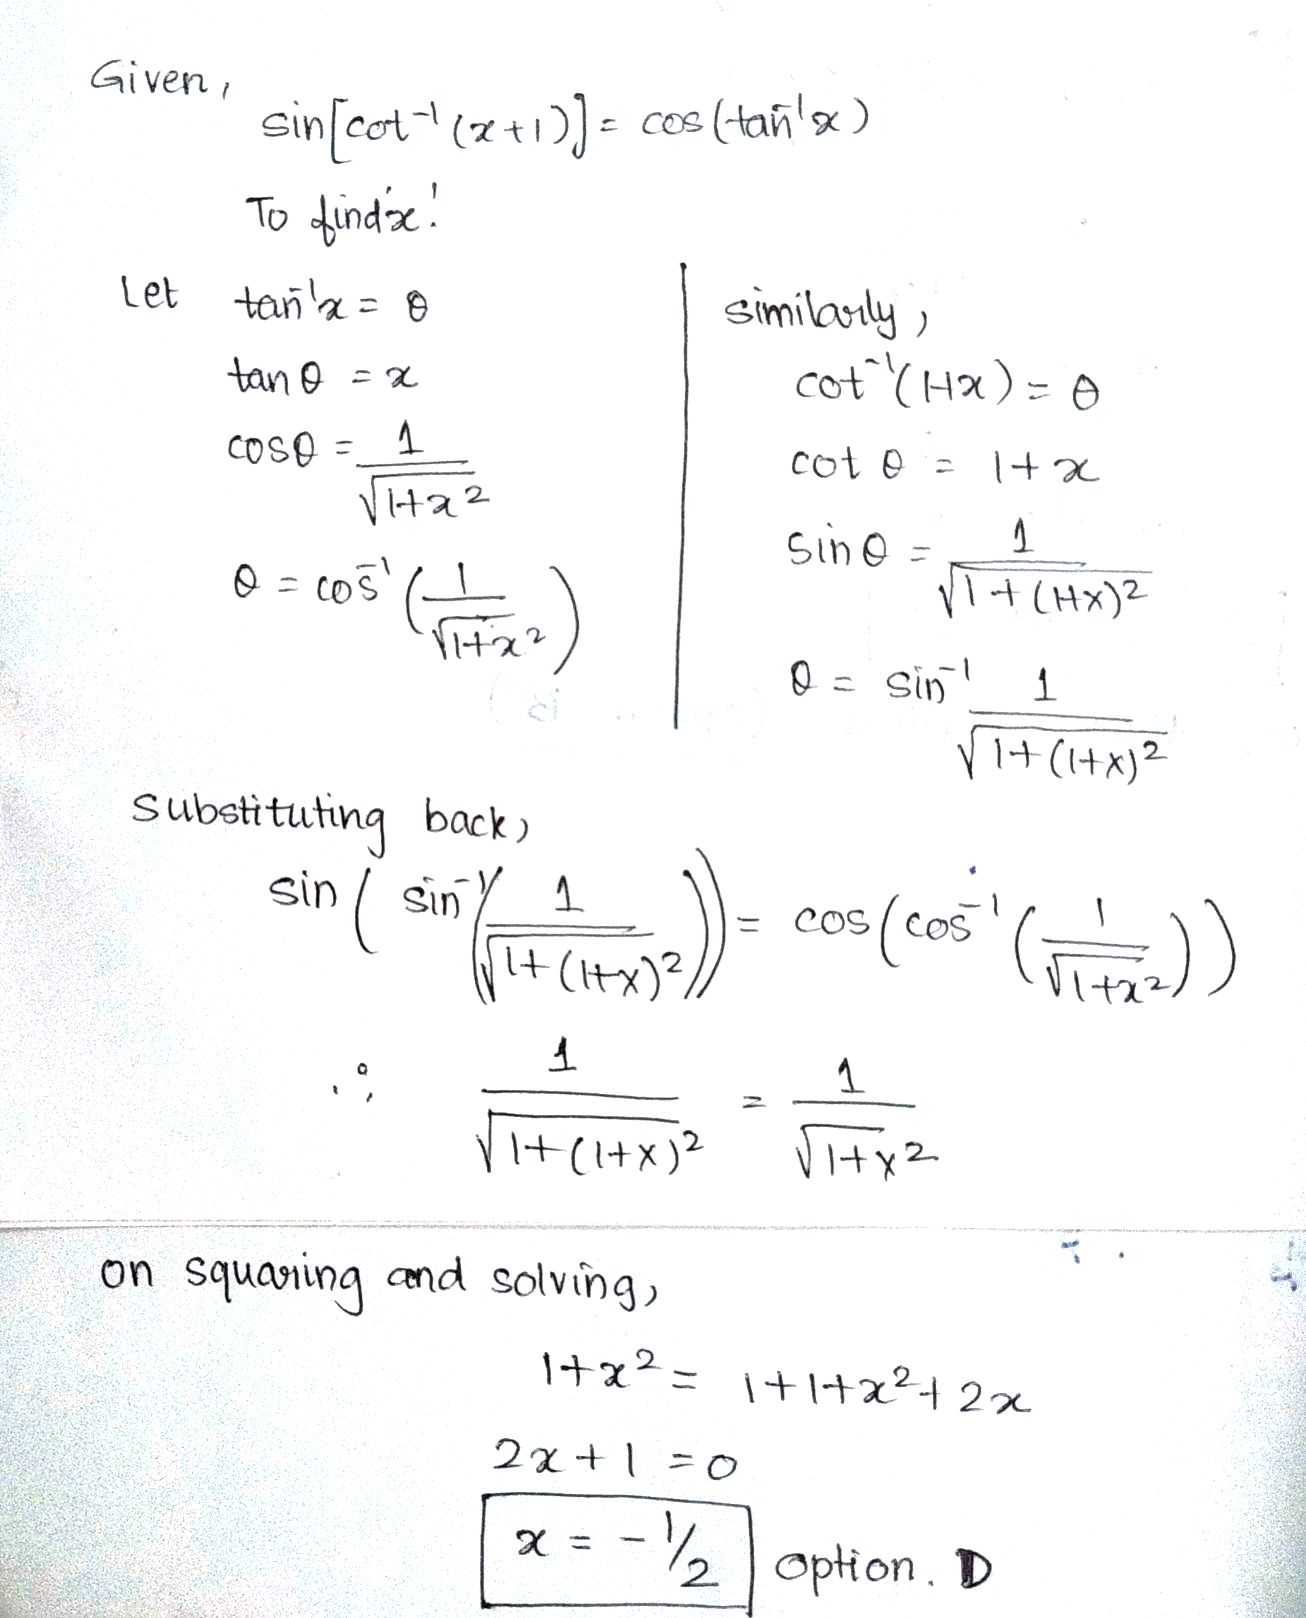 Given,
sin[cot⁻¹(x+1)] = cos(tan⁻¹x)
To find 'x'.
Let tan⁻¹x = θ
tan θ = x
cosθ = 1/√(1+x²)
θ = cos⁻¹(1/√(1+x²))
similarly,
cot⁻¹(1+x) = θ
cot θ = 1+x
Sin θ = 1/√(1+(1+x)²)
θ = sin⁻¹ 1/√(1+(1+x)²)
Substituting back,
sin(sin⁻¹(1/√(1+(1+x)²))) = cos(cos⁻¹(1/√(1+x²)))
∴ 1/√(1+(1+x)²) = 1/√(1+x²)
on squaring and solving,
1+x² = 1+1+x²+2x
2x+1 = 0
x = -1/2 option. D